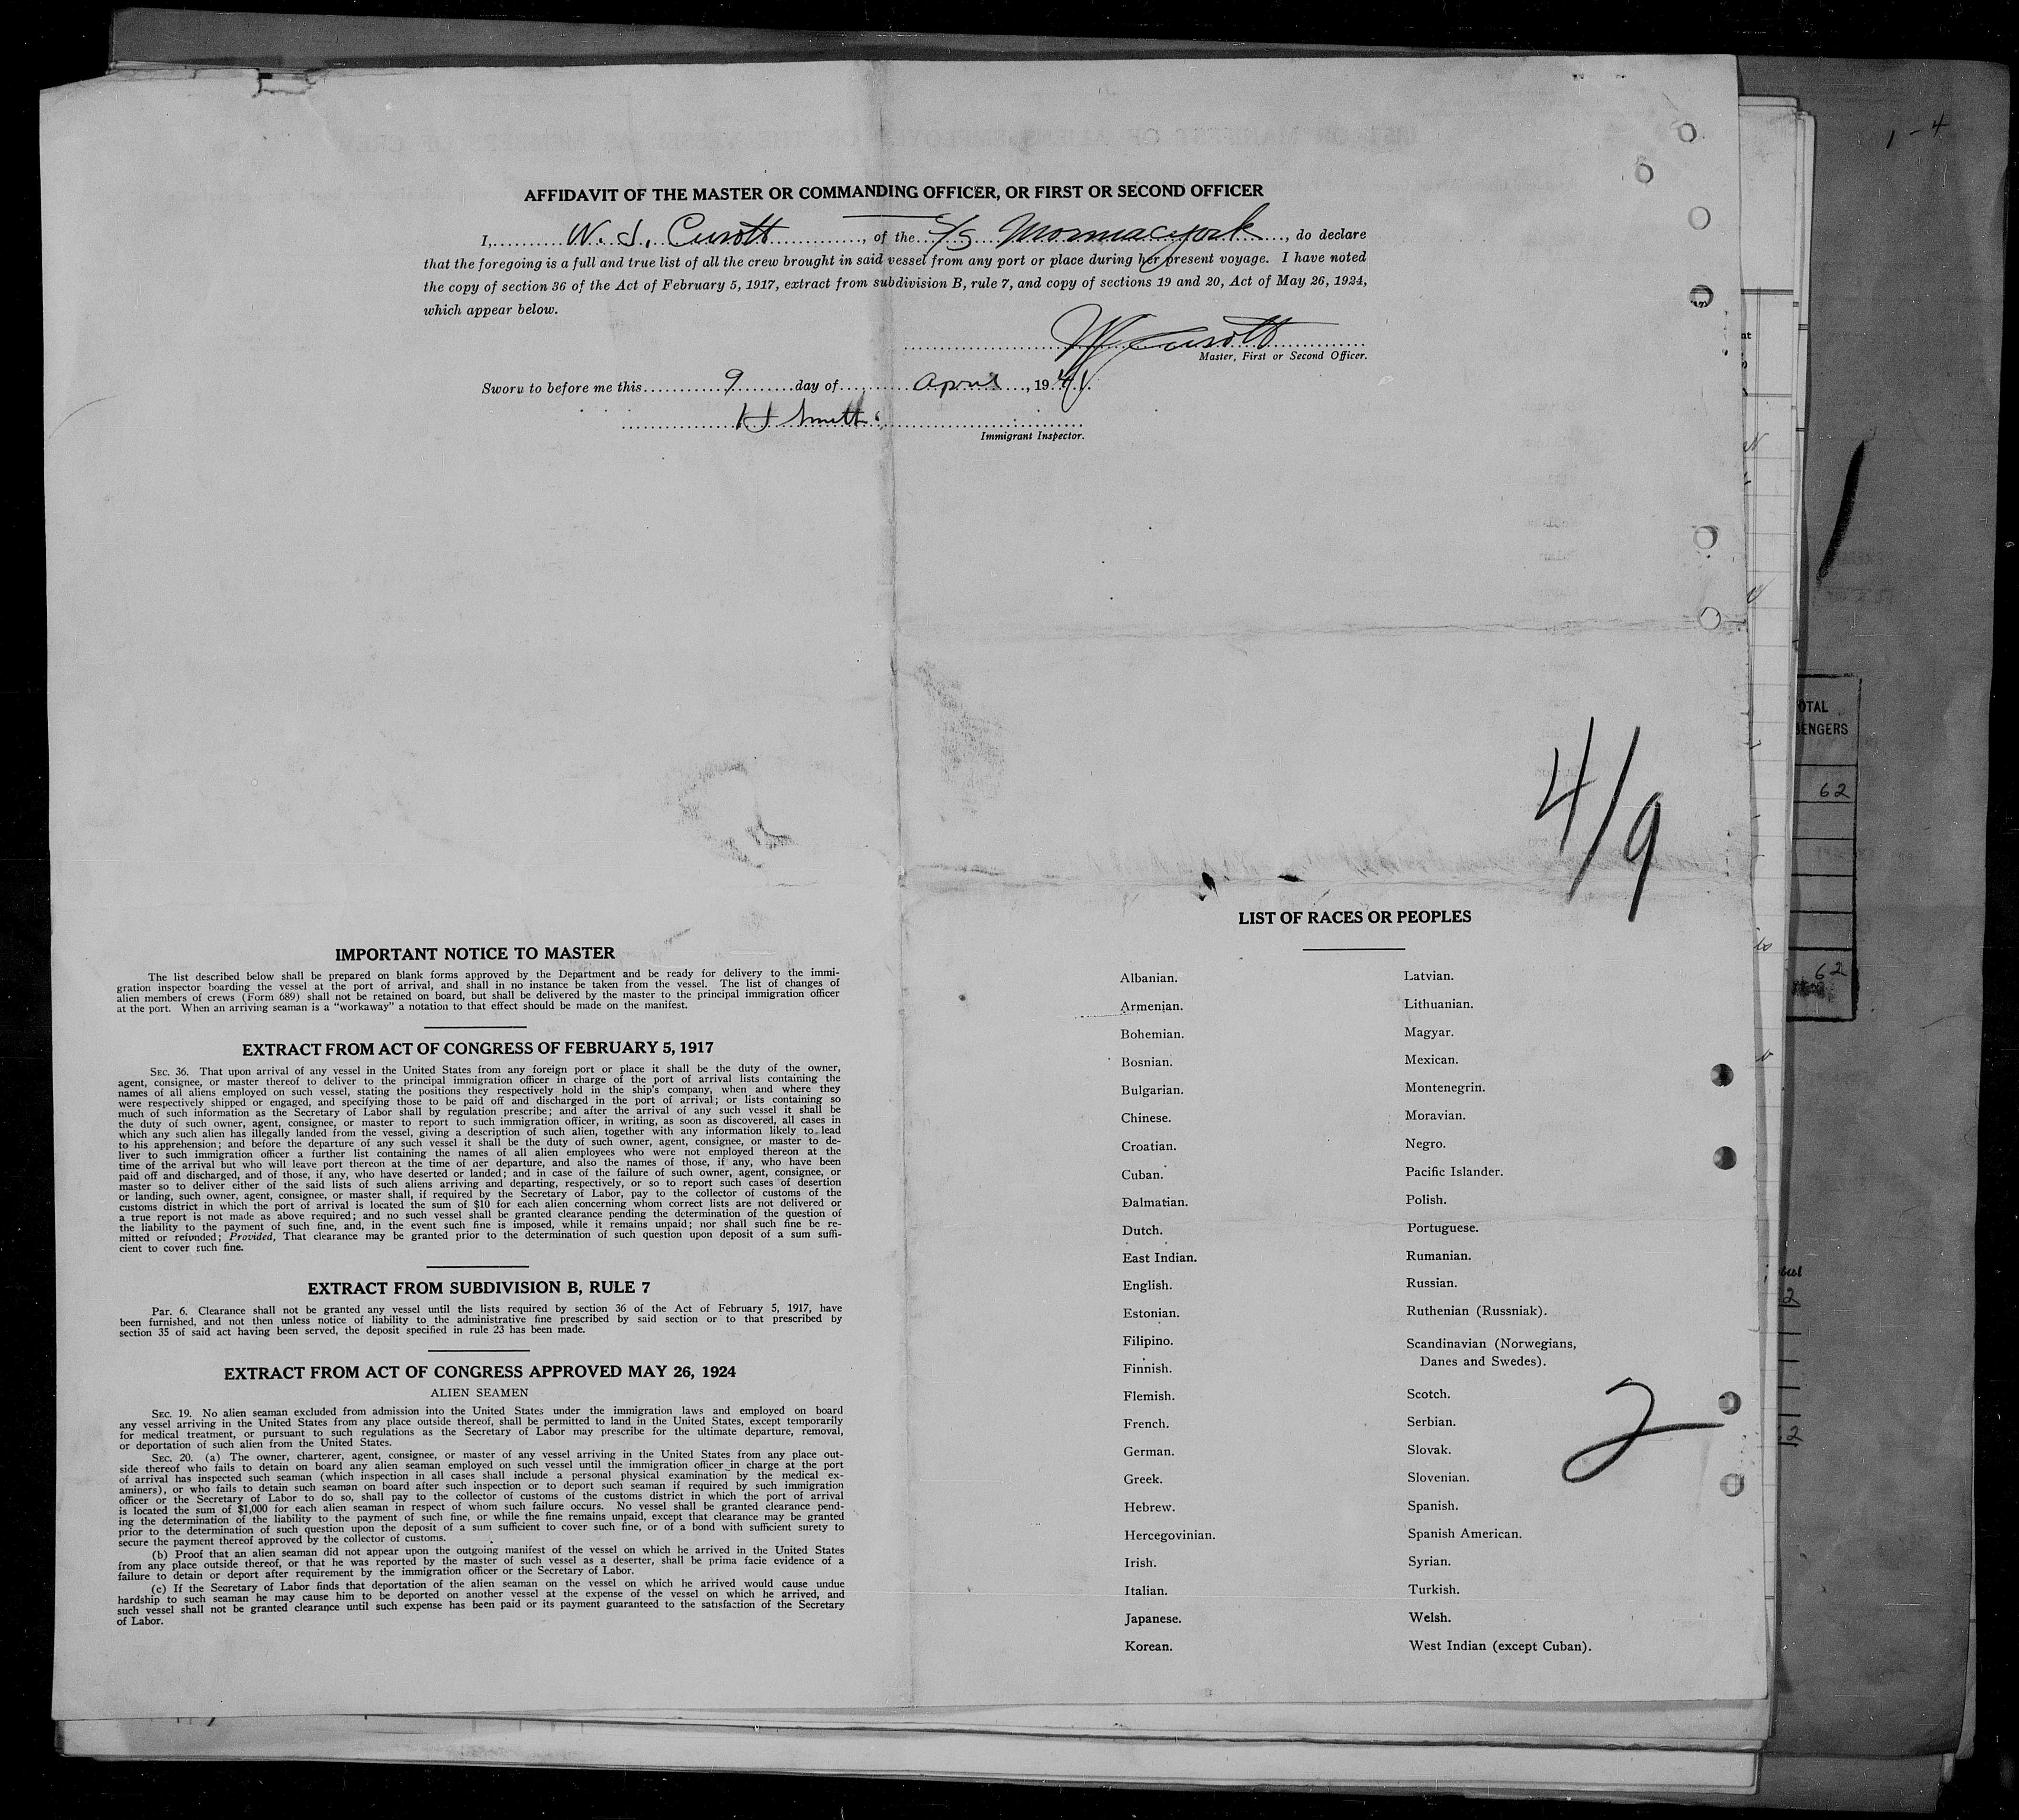 1 - 4
AFFIDAVIT OF THE MASTER OR COMMANDING OFFICER, OR FIRST OR SECOND OFFICER
I, W. J. Curott, of the S/S Mormacyork, do declare
that the foregoing is a full and true list of all the crew brought in said vessel from any port or place during her present voyage. I have noted
the copy of section 36 of the Act of February 5, 1917, extract from subdivision B, rule 7, and copy of sections 19 and 20, Act of May 26, 1924,
which appear below.
Master, First or Second Officer.
Sworn to before me this 9 day of April, 1941
H J Smith
Immigrant Inspector.
4/9
IMPORTANT NOTICE TO MASTER
The list described below shall be prepared on blank forms approved by the Department and be ready for delivery to the immi-
gration inspector boarding the vessel at the port of arrival, and shall in no instance be taken from the vessel. The list of changes of
alien members of crews (Form 689) shall not be retained on board, but shall be delivered by the master to the principal immigration officer
at the port. When an arriving seaman is a "workaway" a notation to that effect should be made on the manifest.
EXTRACT FROM ACT OF CONGRESS OF FEBRUARY 5, 1917
SEC. 36. That upon arrival of any vessel in the United States from any foreign port or place it shall be the duty of the owner,
agent, consignee, or master thereof to deliver to the principal immigration officer in charge of the port of arrival lists containing the
names of all aliens employed on such vessel, stating the positions they respectively hold in the ship's company, when and where they
were respectively shipped or engaged, and specifying those to be paid off and discharged in the port of arrival; or lists containing so
much of such information as the Secretary of Labor shall by regulation prescribe; and after the arrival of any such vessel it shall be
the duty of such owner, agent, consignee, or master to report to such immigration officer, in writing, as soon as discovered, all cases in
which any such alien has illegally landed from the vessel, giving a description of such alien, together with any information likely to lead
to his apprehension; and before the departure of any such vessel it shall be the duty of such owner, agent, consignee, or master to de-
liver to such immigration officer a further list containing the names of all alien employees who were not employed thereon at the
time of the arrival but who will leave port thereon at the time of her departure, and also the names of those, if any, who have been
paid off and discharged, and of those, if any, who have deserted or landed; and in case of the failure of such owner, agent, consignee, or
master so to deliver either of the said lists of such aliens arriving and departing, respectively, or so to report such cases of desertion
or landing, such owner, agent, consignee, or master shall, if required by the Secretary of Labor, pay to the collector of customs of the
customs district in which the port of arrival is located the sum of $10 for each alien concerning whom correct lists are not delivered or
a true report is not made as above required; and no such vessel shall be granted clearance pending the determination of the question of
the liability to the payment of such fine, and, in the event such fine is imposed, while it remains unpaid; nor shall such fine be re-
mitted or refunded; Provided, That clearance may be granted prior to the determination of such question upon deposit of a sum suffi-
cient to cover such fine.
EXTRACT FROM SUBDIVISION B, RULE 7
Par. 6. Clearance shall not be granted any vessel until the lists required by section 36 of the Act of February 5, 1917, have
been furnished, and not then unless notice of liability to the administrative fine prescribed by said section or to that prescribed by
section 35 of said act having been served, the deposit specified in rule 23 has been made.
EXTRACT FROM ACT OF CONGRESS APPROVED MAY 26, 1924
ALIEN SEAMEN
SEC. 19. No alien seaman excluded from admission into the United States under the immigration laws and employed on board
any vessel arriving in the United States from any place outside thereof, shall be permitted to land in the United States, except temporarily
for medical treatment, or pursuant to such regulations as the Secretary of Labor may prescribe for the ultimate departure, removal,
or deportation of such alien from the United States.
SEC. 20. (a) The owner, charterer, agent, consignee, or master of any vessel arriving in the United States from any place out-
side thereof who fails to detain on board any alien seaman employed on such vessel until the immigration officer in charge at the port
of arrival has inspected such seaman (which inspection in all cases shall include a personal physical examination by the medical ex-
aminers), or who fails to detain such seaman on board after such inspection or to deport such seaman if required by such immigration
officer or the Secretary of Labor to do so, shall pay to the collector of customs of the customs district in which the port of arrival
is located the sum of $1,000 for each alien seaman in respect of whom such failure occurs. No vessel shall be granted clearance pend-
ing the determination of the liability to the payment of such fine, or while the fine remains unpaid, except that clearance may be granted
prior to the determination of such question upon the deposit of a sum sufficient to cover such fine, or of a bond with sufficient surety to
secure the payment thereof approved by the collector of customs.
(b) Proof that an alien seaman did not appear upon the outgoing manifest of the vessel on which he arrived in the United States
from any place outside thereof, or that he was reported by the master of such vessel as a deserter, shall be prima facie evidence of a
failure to detain or deport after requirement by the immigration officer or the Secretary of Labor.
(c) If the Secretary of Labor finds that deportation of the alien seaman on the vessel on which he arrived would cause undue
hardship to such seaman he may cause him to be deported on another vessel at the expense of the vessel on which he arrived, and
such vessel shall not be granted clearance until such expense has been paid or its payment guaranteed to the satisfaction of the Secretary
of Labor.
LIST OF RACES OR PEOPLES
Albanian.
Armenian.
Bohemian.
Bosnian.
Bulgarian.
Chinese.
Croatian.
Cuban.
Dalmatian.
Dutch.
East Indian.
English.
Estonian.
Filipino.
Finnish.
Flemish.
French.
German.
Greek.
Hebrew.
Hercegovinian.
Irish.
Italian.
Japanese.
Korean.
Latvian.
Lithuanian.
Magyar.
Mexican.
Montenegrin.
Moravian.
Negro.
Pacific Islander.
Polish.
Portuguese.
Rumanian.
Russian.
Ruthenian (Russniak).
Scandinavian (Norwegians,
Danes and Swedes).
Scotch.
Serbian.
Slovak.
Slovenian.
Spanish.
Spanish American.
Syrian.
Turkish.
Welsh.
West Indian (except Cuban).
2
OTAL
ENGERS
62
62